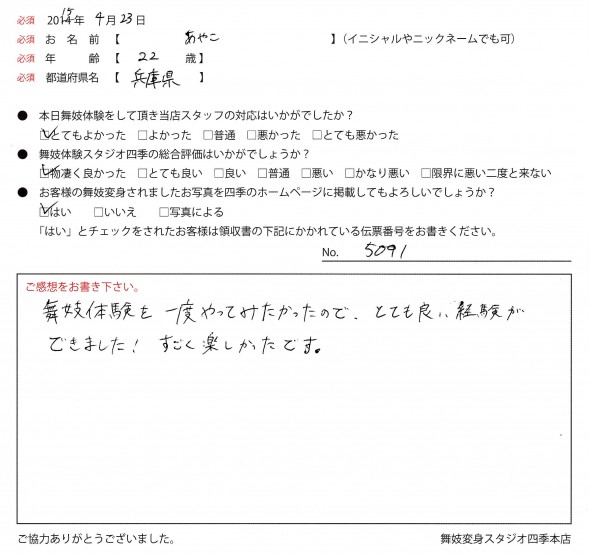 必須 2015年 4月23日
必須 お名前【 あやこ 】(イニシャルやニックネームでも可)
必須 年齢【 22 歳】
必須 都道府県名【 兵庫県 】
● 本日舞妓体験をして頂き当店スタッフの対応はいかがでしたか？
☑とてもよかった □よかった □普通 □悪かった □とても悪かった
● 舞妓体験スタジオ四季の総合評価はいかがでしょうか？
☑物凄く良かった □とても良い □良い □普通 □悪い □かなり悪い □限界に悪い二度と来ない
● お客様の舞妓変身されましたお写真を四季のホームページに掲載してもよろしいでしょうか？
☑はい □いいえ □写真による
「はい」とチェックをされたお客様は領収書の下記にかかれている伝票番号をお書きください。
No. 5091
ご感想をお書き下さい。
舞妓体験を一度やってみたかったので、とても良い経験が
できました！すごく楽しかったです。
ご協力ありがとうございました。 舞妓変身スタジオ四季本店